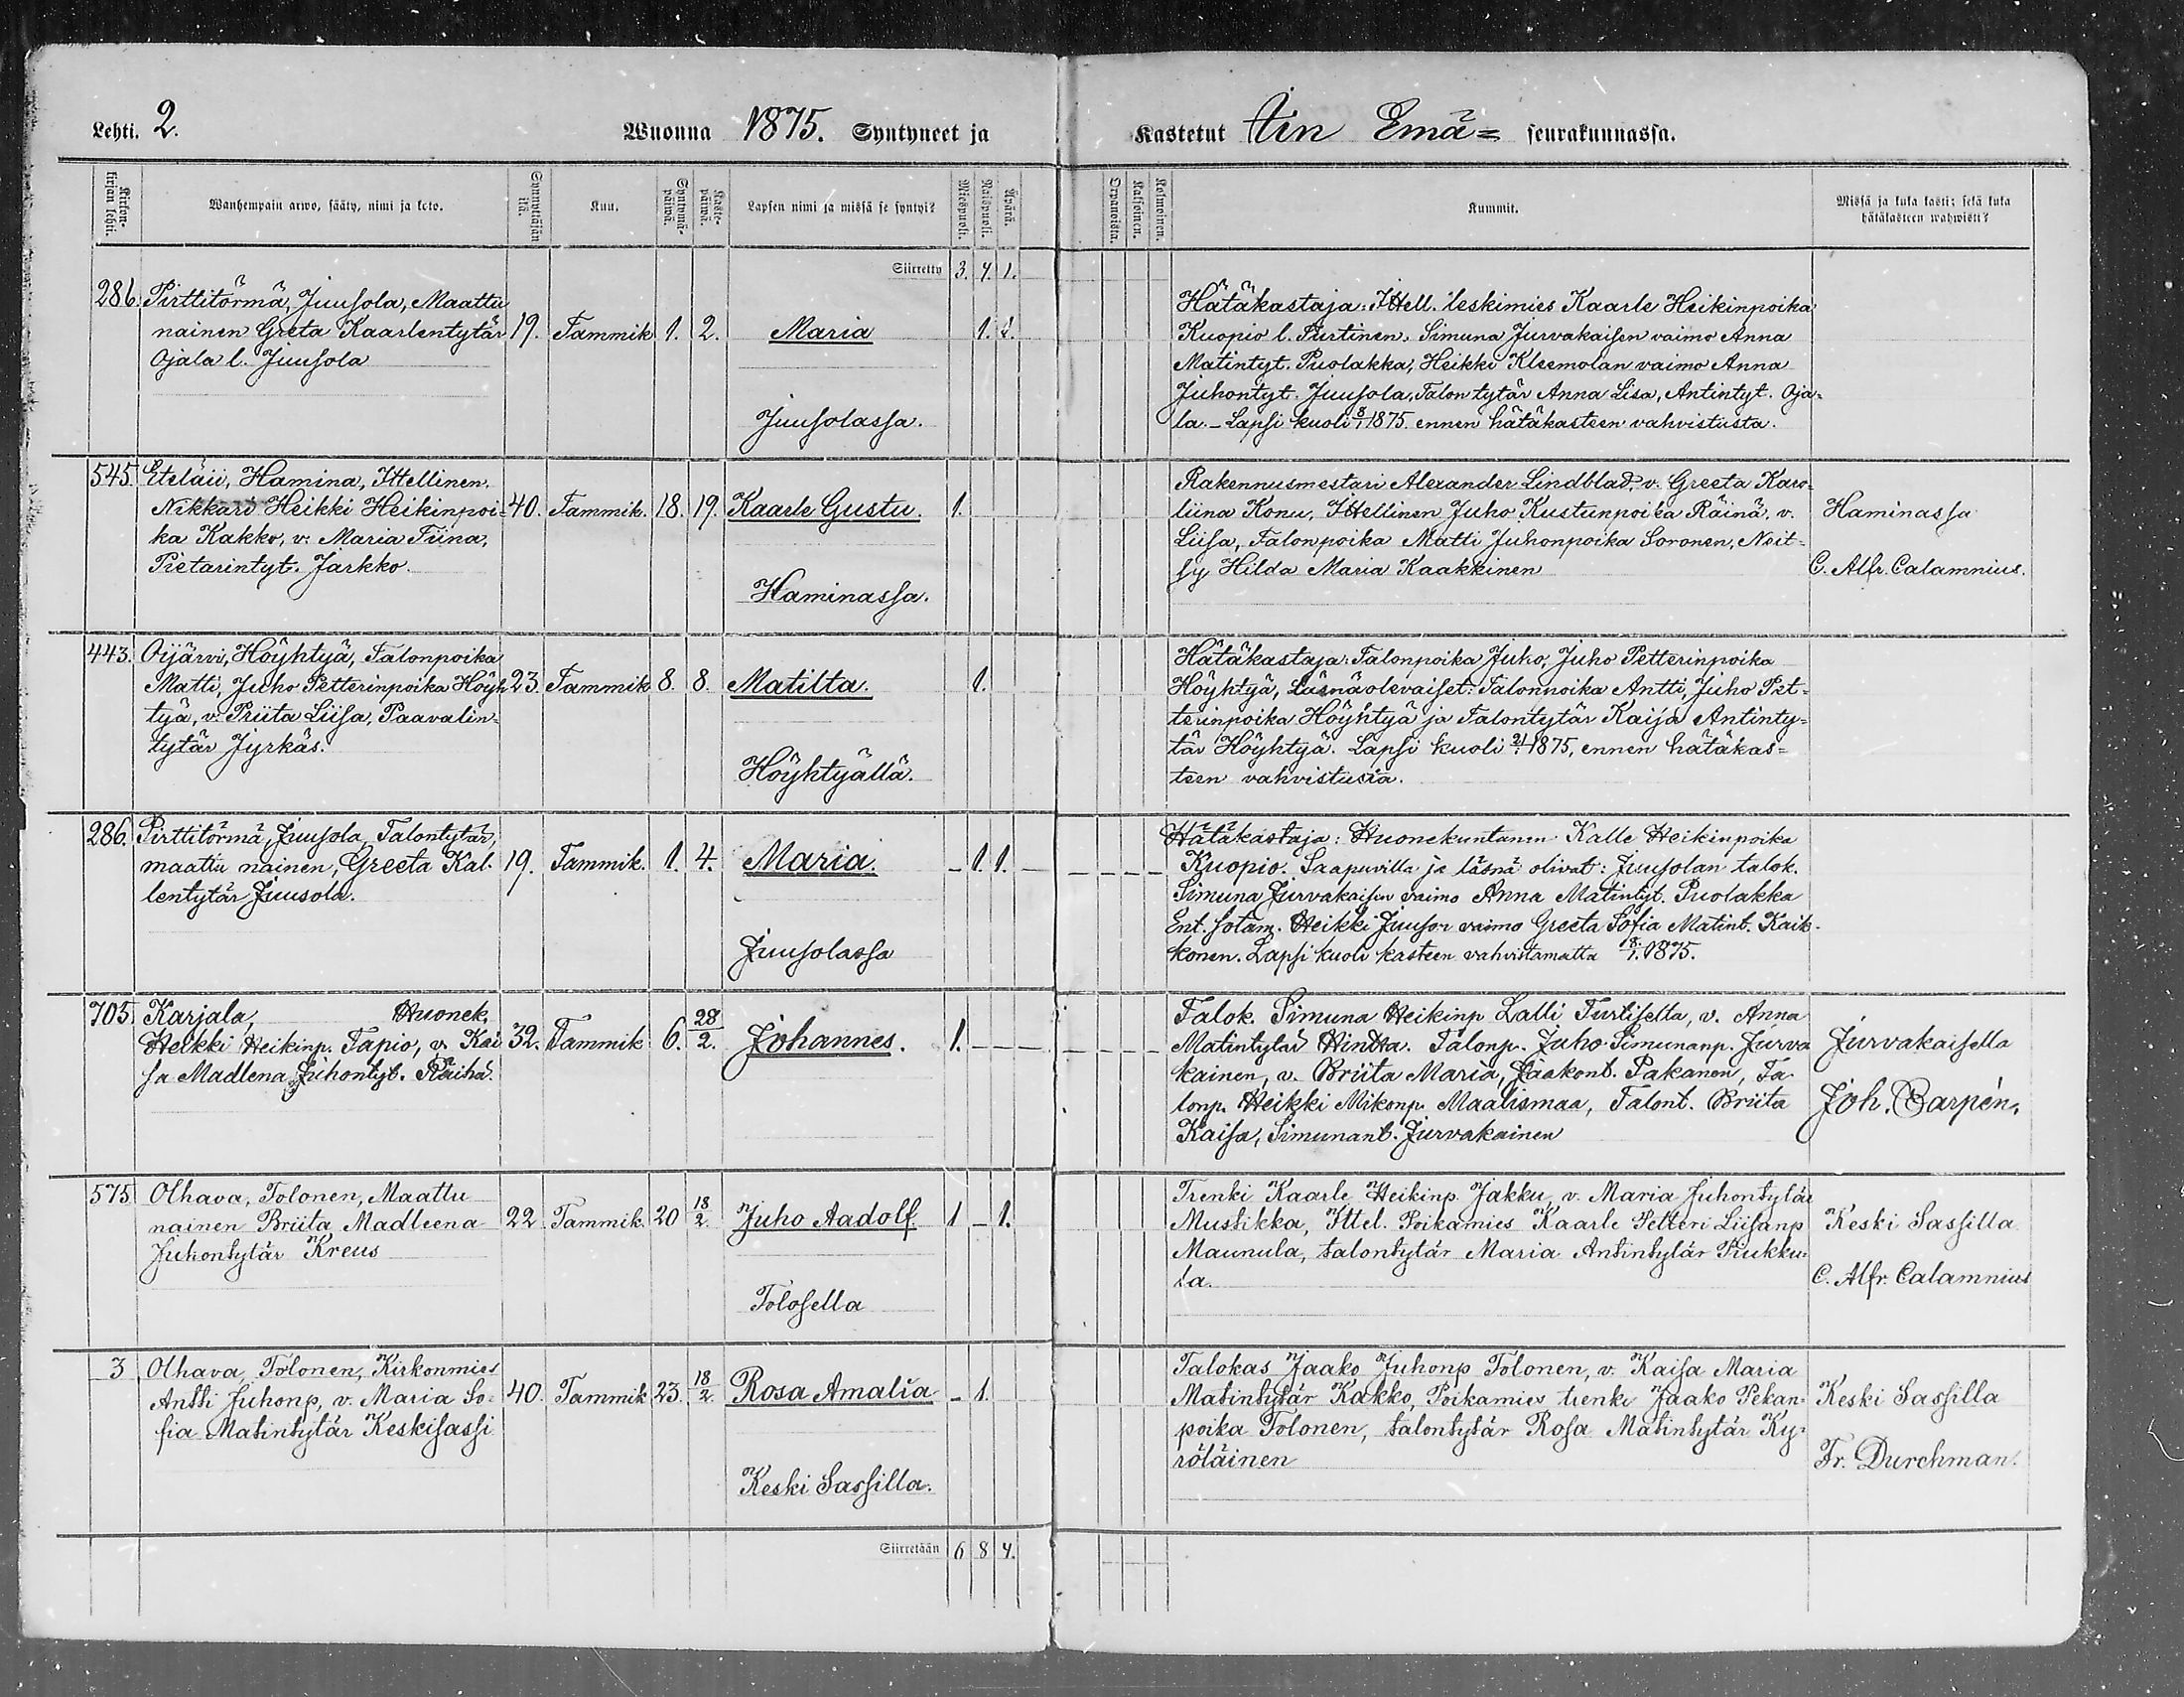 Lehti. 2.
Wuonna 1875. Syntyneet ja
Kastetut Iin Emä= seurakunnassa.
Kirkon-
kirjan lehti.
Wanhempain arwo, sääty, nimi ja koto.
Synnyttäjän
ikä.
Kuu.
Syntymä-
päivä.
Kaste-
päivä.
Lapsen nimi ja missä se syntyi?
Miespuoli.
Naispuoli.
Äpärä.
Orpanoista.
Kaksoinen.
Kolmoinen.
Kummit.
Missä ja kuka kasti; sekä kuka
hätäkasteen wahwisti?
Siirretty 3. 4. 1.
286. Pirttitörmä, Juusola, Maattu
nainen Greta Kaarlentytär 19. Tammik. 1. 2. Maria 1. 1.
Ojala l. Juusola
Juusolassa.
Hätäkastaja: Ittell. leskimies Kaarle Heikinpoika
Kuopio l. Simuna Jurvakaisen vaimo Anna
Matintyt. Puolakka, Heikki Kleemolan vaimo Anna
Juhontyt. Juusola, Talontytär Anna Lisa, Antintyt. Oja=
la. - Lapsi kuoli 8/1 1875. ennen hätäkasteen vahvistusta.
545. Eteläii, Hamina, Ittellinen,
Nikkari Heikki Heikinpoi- 40. Tammik. 18. 19. Kaarle Gustu. 1.
ka Kakko, v: Maria Fiina,
Pietarintyt. Jarkko.
Haminassa.
Rakennusmestari Alexander Lindblad, v. Greeta Karo-
liina Konu, Ittellinen Juho Kustunpoika Räinä, v.
Liisa, Talonpoika Matti Juhonpoika Soronen, Neit=
sy Hilda Maria Kaakkinen
Haminassa
C. Alfr. Calamnius.
443. Oijärvi, Höyhtyä, Talonpoika
Matti, Juho Petterinpoika Höyh 23. Tammik 8. 8. Matilta. 1.
tyä, v: Priita Liisa, Paavalin-
tytär Jyrkäs.
Höyhtyällä.
Hätäkastaja: Talonpoika Juho, Juho Petterinpoika
Höyhtyä, Läsnäolevaiset: Talonpoika Antti, Juho Pet=
terinpoika Höyhtyä ja Talontytär Kaija Antinty=
tär Höyhtyä. Lapsi kuoli 1875, ennen hätäkas=
teen vahvistusta.
286. Pirttitörmä, Juusola, Talontytär,
maattu nainen, Greeta Kal- 19. Tammik. 1. 4. Maria. - 1. 1. -
lentytär Juusola.
Juusolassa
Hätäkastaja: Huonekuntanm. Kalle Heikinpoika
Kuopio. Saapuvilla ja läsnä olivat: Juusolan talok.
Simuna Jurvakaisen vaimo Anna Matintyt. Puolakka
Ent. sotam. Heikki Juuson vaimo Greeta Sofia Matint. Kaik-
konen. Lapsi kuoli kasteen vahvistamatta 18/1. 1875.
705 Karjala, Huonek.
Heikki Heikinp. Tapio, v. Kai 32. Tammik 6. 28/2. Johannes. 1. - - -
sa Madlena Juhontyt. Räihä.
Talok. Simuna Heikinp Lalli Turtisella, v. Anna
Matintytär Hintta. Talonp. Juho Simunanp. Jurva
kainen, v. Briita Maria, Jaakont. Pakanen, Ta-
lonp. Heikki Mikonp. Maalismaa, Talont. Briita
Kaisa, Simunant. Jurvakainen
Jurvakaisella
Joh. Barpén.
575 Olhava, Tolonen, Maattu
nainen Briita Madleena 22. Tammik. 20 18/2. Juho Aadolf 1 - 1.
Juhontytär Kreus
Tolosella
Trenki Kaarle Heikinp. Jakku, v. Maria Juhontytär
Mustikka, Ittel. Poikamies Kaarle Petteri Liisanp
Maunula, talontytär Maria Antintytär Piukku-
la.
Keski Sassilla
C. Alfr. Calamnius
3 Olhava, Tolonen, Kirkonmies
Antti Juhonp, v. Maria So- 40. Tammik 23. 18/2. Rosa Amalia - 1.
fia Matintytär Keskisassi
Keski Sassilla.
Talokas Jaako Juhonp Tolonen, v. Kaisa Maria
Matintytär Kakko, Poikamies trenki Jaako Pekan-
poika Tolonen, talontytär Rosa Matintytär Ky-
röläinen
Keski Sassilla
Fr. Durchman.
Siirretään 6 8 4.